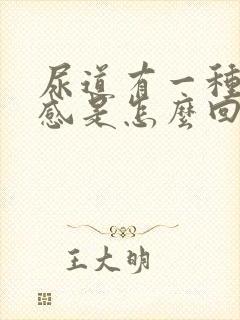 尿道有一種
感是怎麼回
王大明